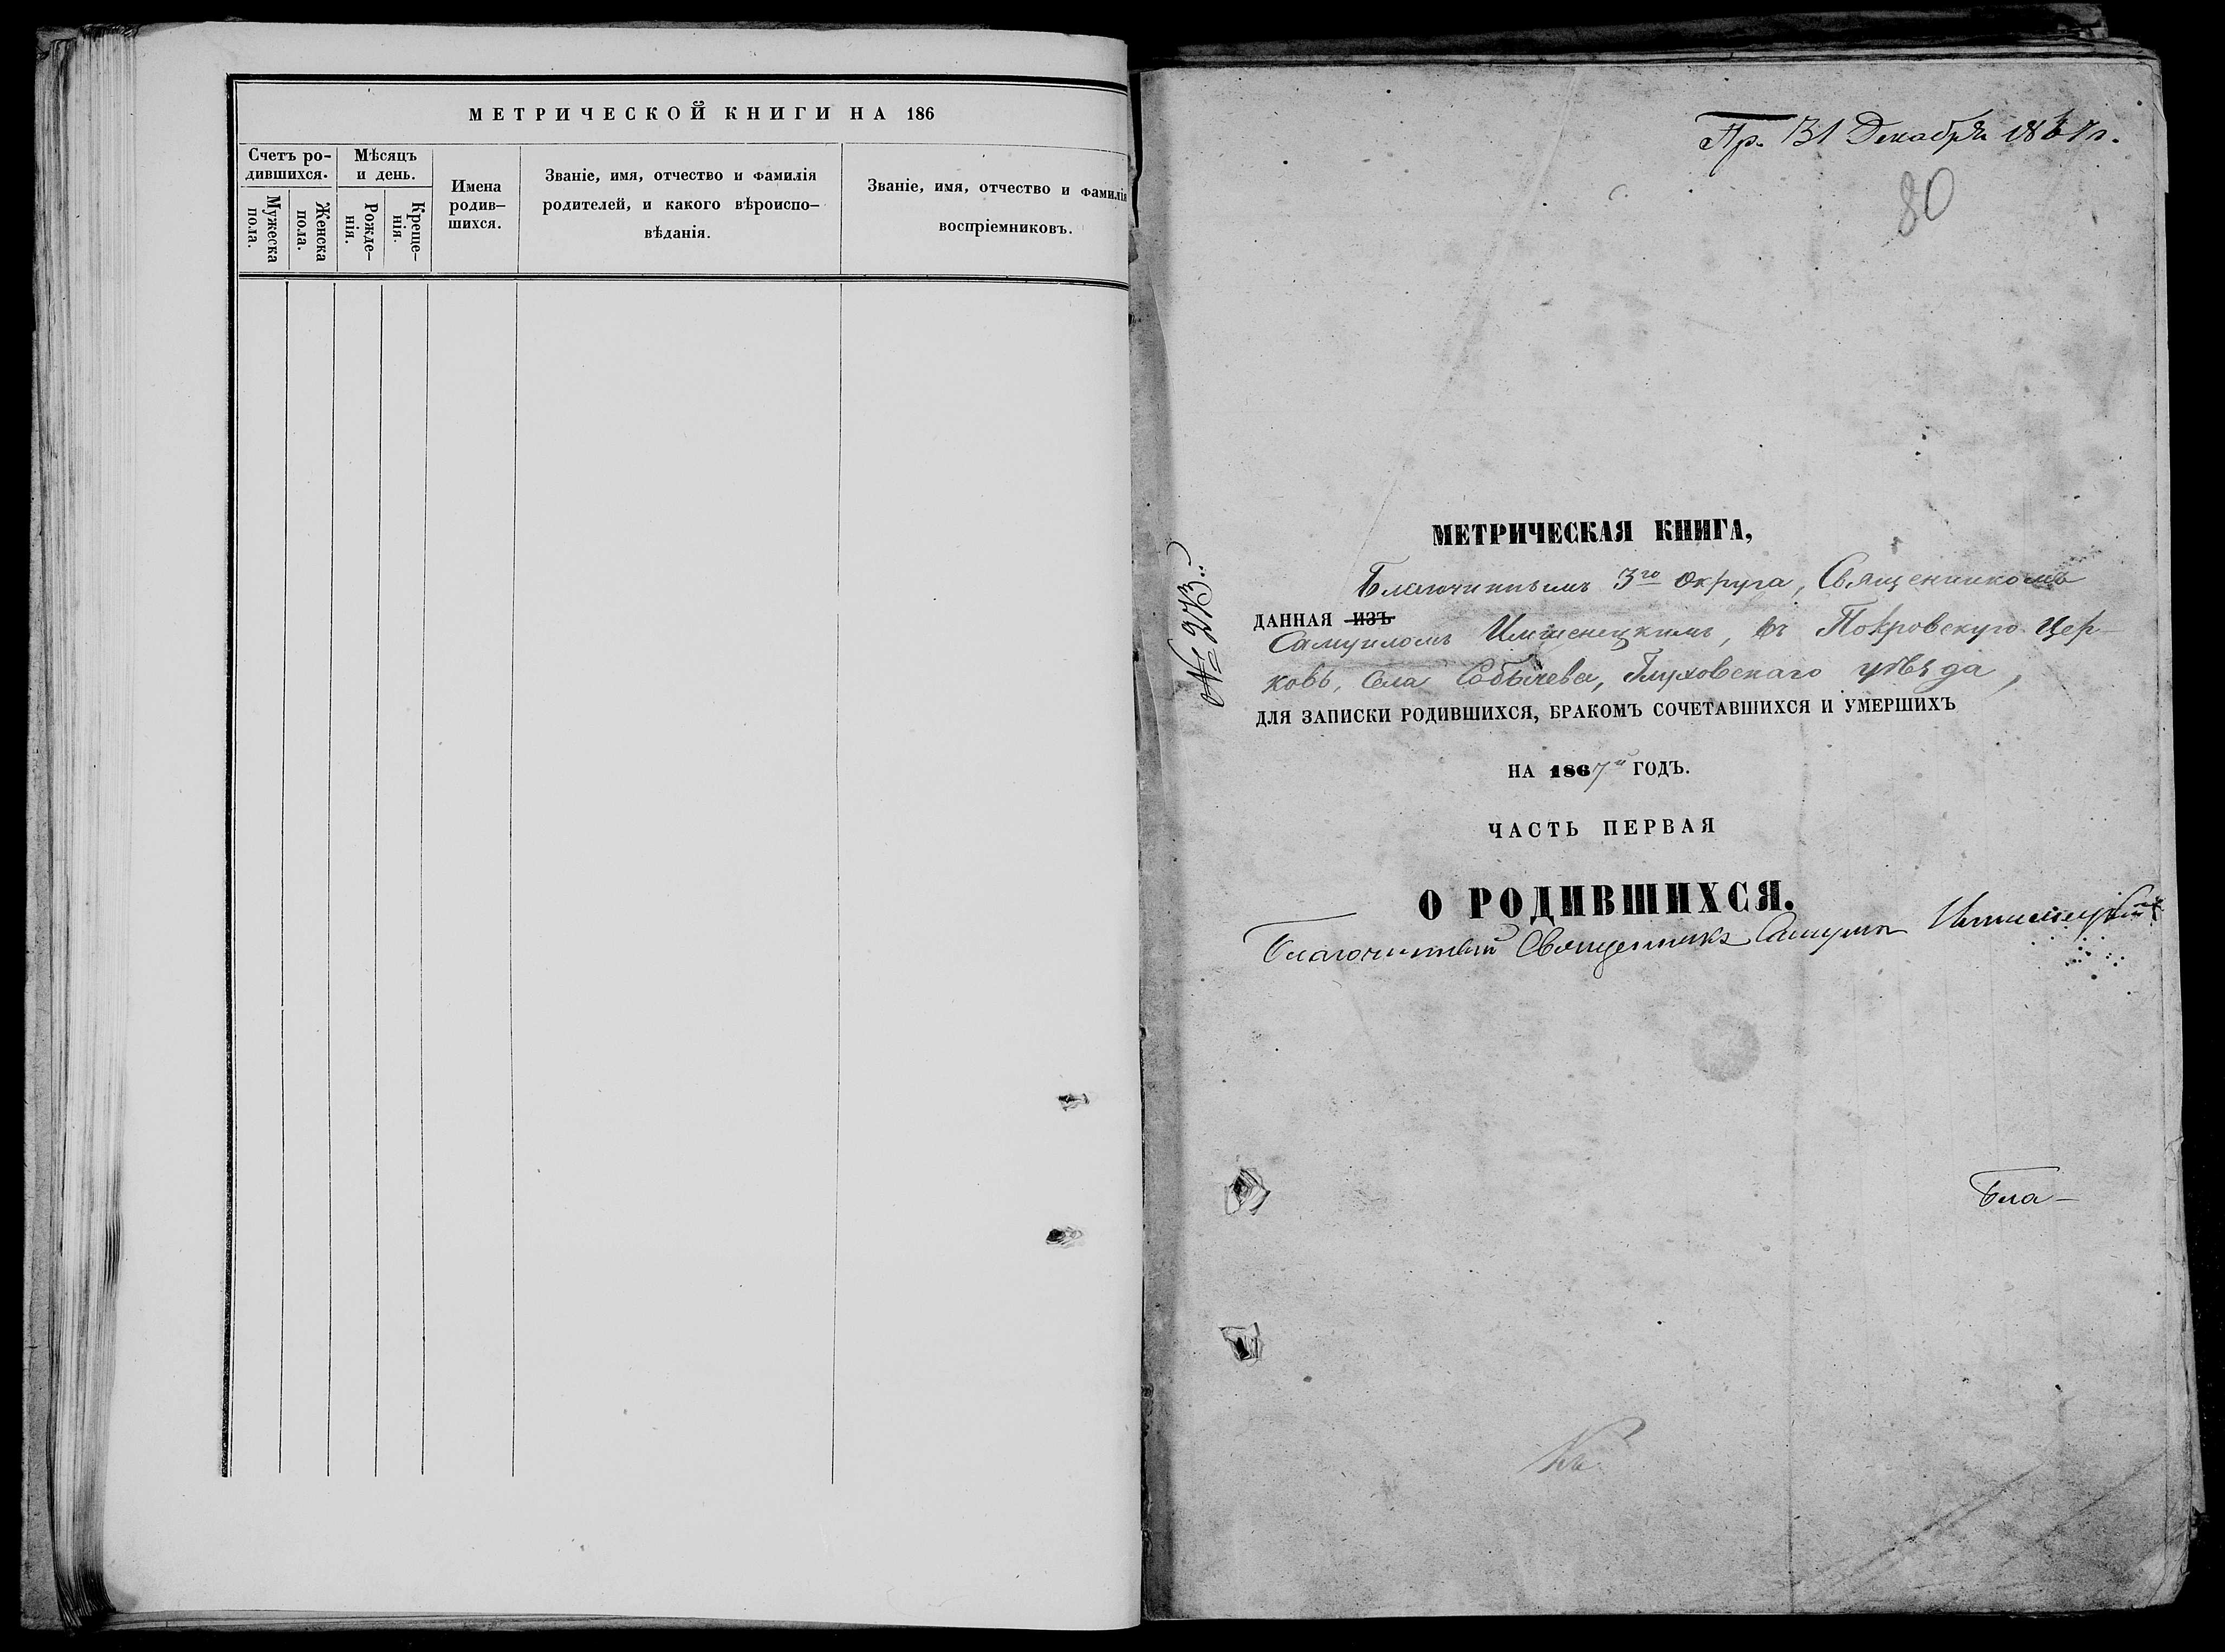 МЕТРИЧЕСКОЙ КНИГИ НА 186
Счетъ ро-
дившихся.
Мужеска
пола.
Женска
пола.
Мѣсяцъ
и день.
Рожде-
нія.
Креще-
нія.
Имена
родив-
шихся.
Званіе, имя, отчество и фамилія
родителей, и какого вѣроиспо-
вѣданія.
Званіе, имя, отчество и фамилія
воспріемниковъ.
Пр. 31 Декабря 1867 г.
80
№ 273.
МЕТРИЧЕСКАЯ КНИГА,
Благочиннымъ 3го Округа, Священникомъ
ДАННАЯ ИЗЪ
Самуиломъ Имшенецкимъ, въ Покровскую Цер-
ковь, Села Собычева, Глуховскаго уѣзда,
ДЛЯ ЗАПИСКИ РОДИВШИХСЯ, БРАКОМЪ СОЧЕТАВШИХСЯ И УМЕРШИХЪ
НА 1867й ГОДЪ.
ЧАСТЬ ПЕРВАЯ
О РОДИВШИХСЯ.
Благочинный Священникъ Самуилъ Имшенецкій
Бла-